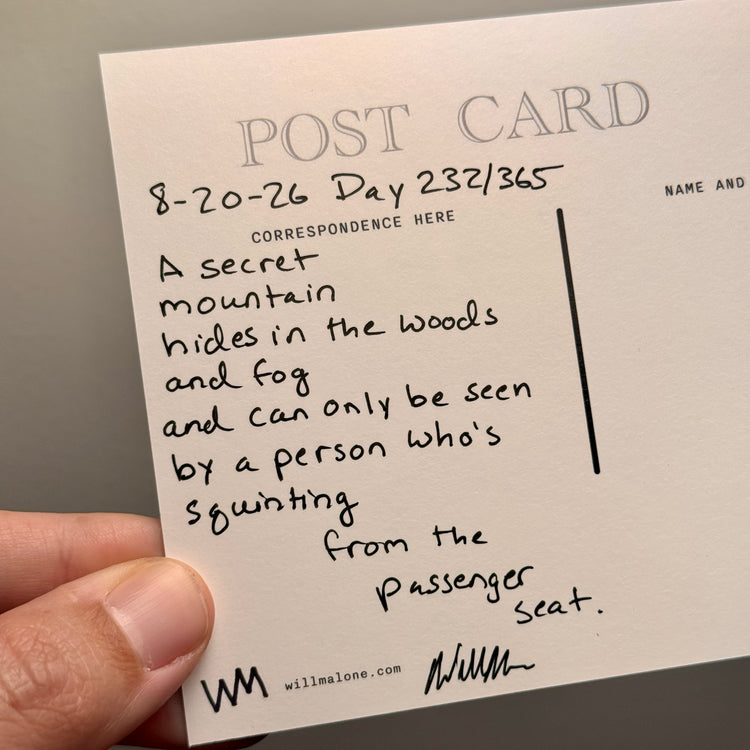 POST CARD
8-20-26 Day 232/365
CORRESPONDENCE HERE
NAME AND
A secret
mountain
hides in the woods
and fog
and can only be seen
by a person who's
squinting
from the
passenger
seat.
WM willmalone.com